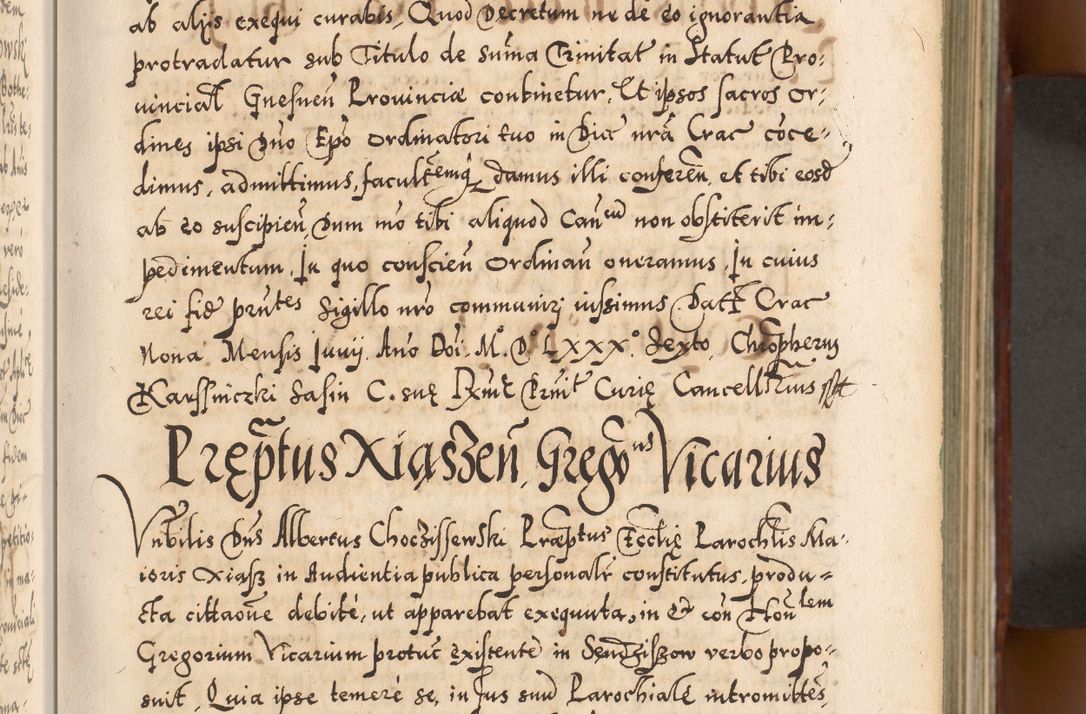 ab alijs exequi curabis, Quod Decretum ne de eo ignorantia
protradatur sub Titulo de suma Trinitat in Statut Pro:
uincial Gnesnen Prouinciæ continetur, Et ipsos sacros or:
dines ipsi Dno Epo ordinatori tuo in Dice nrâ Crac coce-
dimus, admittimus, facultemq damus illi conferen, et tibi eosd
ab eo suscipien Dum mo tibi aliquod Can non obstiterit im:
pedimentum, In quo conscien Ordinan oneramus, In cuius
rei fid prntes Sigillo nro communiri iussimus Datt Crac
Nona Mensis Junij. Ano Doi. M.º D.º LXXX.º Sexto, Chropherus
Karssniczki Sasin C. suę Rxmę Prnit Curię Cancellrius sst
Pręptus Xiąszen, Gregonus Vicarius
Vnbilis Dns Albertus Choczissewski Præptus Ecclię Parochlis Ma-
ioris Xiąsz in Audientia publica personalr constitutus, produ=
cta cittaoue debite, ut apparebat exequuta, in et con Honlem
Gregorium Vicarium protuc existente in Sendziszow verbo propo-
suit, Quia ipse temerè se, in Jus suu Parochiale intromittes,